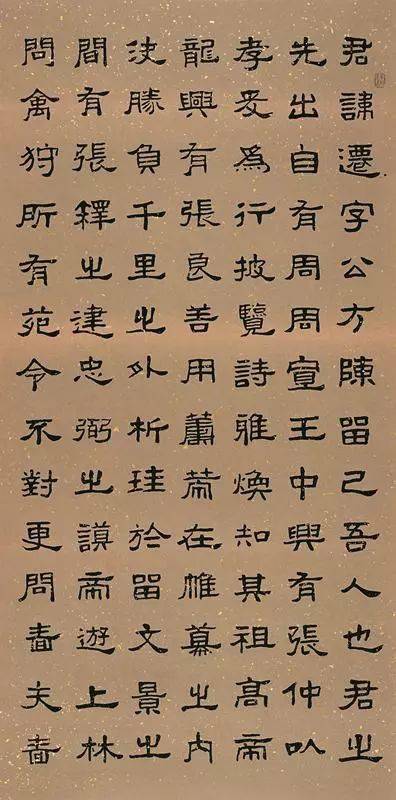 君諱遷字公方陳留己吾人也君之
先出自有周周宣王中興有張仲以
孝友爲行披覽詩雅煥知其祖高帝
龍興有張良善用籌策在帷幕之內
決勝負千里之外析珪於留文景之
間有張釋之建忠弼之謨帝遊上林
問禽狩所有苑令不對更問嗇夫嗇